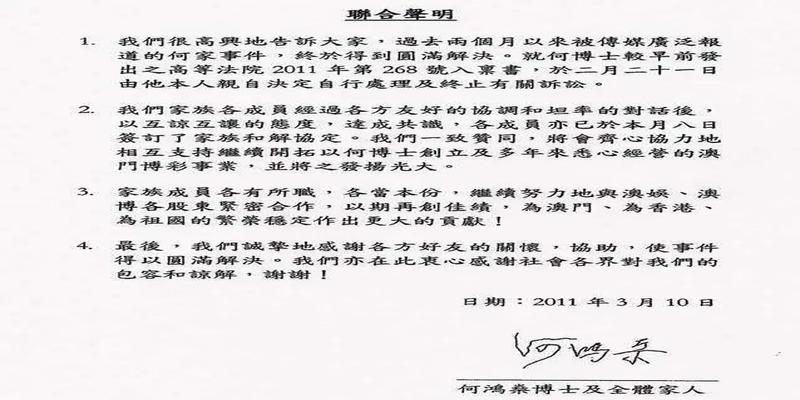 聯合聲明
1. 我們很高興地告訴大家，過去兩個月以來被傳媒廣泛報
道的何家事件，終於得到圓滿解決。就何博士較早前發
出之高等法院 2011 年第 268 號入稟書，於二月二十一日
由他本人親自決定自行處理及終止有關訴訟。
2. 我們家族各成員經過各方友好的協調和坦率的對話後，
以互諒互讓的態度，達成共識，各成員亦已於本月八日
簽訂了家族和解協定。我們一致贊同，將會齊心協力地
相互支持繼續開拓以何博士創立及多年來悉心經營的澳
門博彩事業，並將之發揚光大。
3. 家族成員各有所職，各當本份，繼續努力地與澳娛、澳
博各股東緊密合作，以期再創佳績，為澳門、為香港、
為祖國的繁榮穩定作出更大的貢獻！
4. 最後，我們誠摯地感謝各方好友的關懷，協助，使事件
得以圓滿解決。我們亦在此衷心感謝社會各界對我們的
包容和諒解，謝謝！
日期：2011 年 3 月 10 日
何鴻燊
何鴻燊博士及全體家人